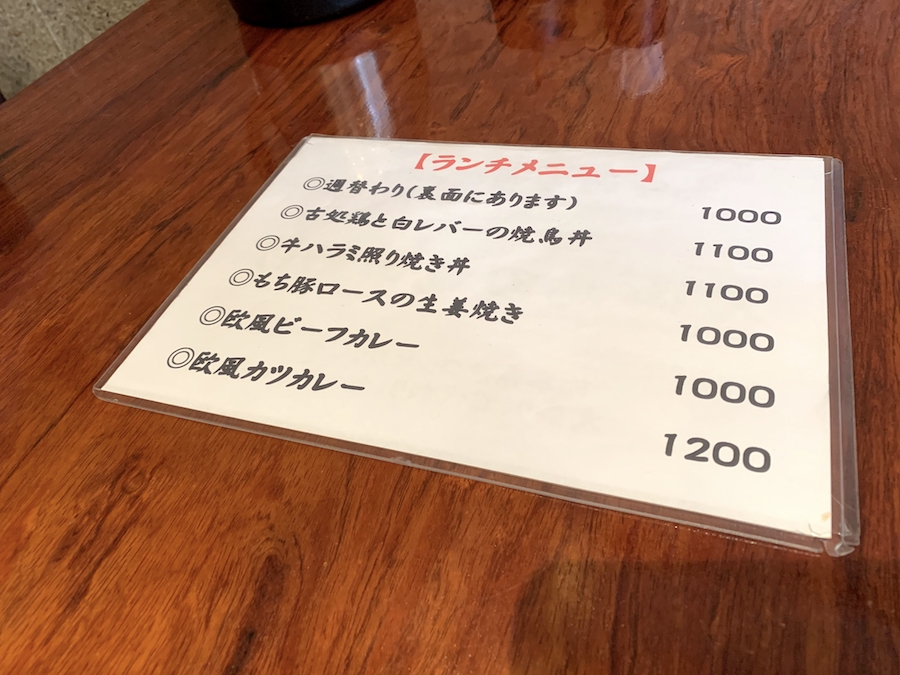 【ランチメニュー】
◎週替わり(裏面にあります) 1000
◎古処鶏と白レバーの焼鳥丼 1100
◎牛ハラミ照り焼き丼 1100
◎もち豚ロースの生姜焼き 1000
◎欧風ビーフカレー 1000
◎欧風カツカレー 1200